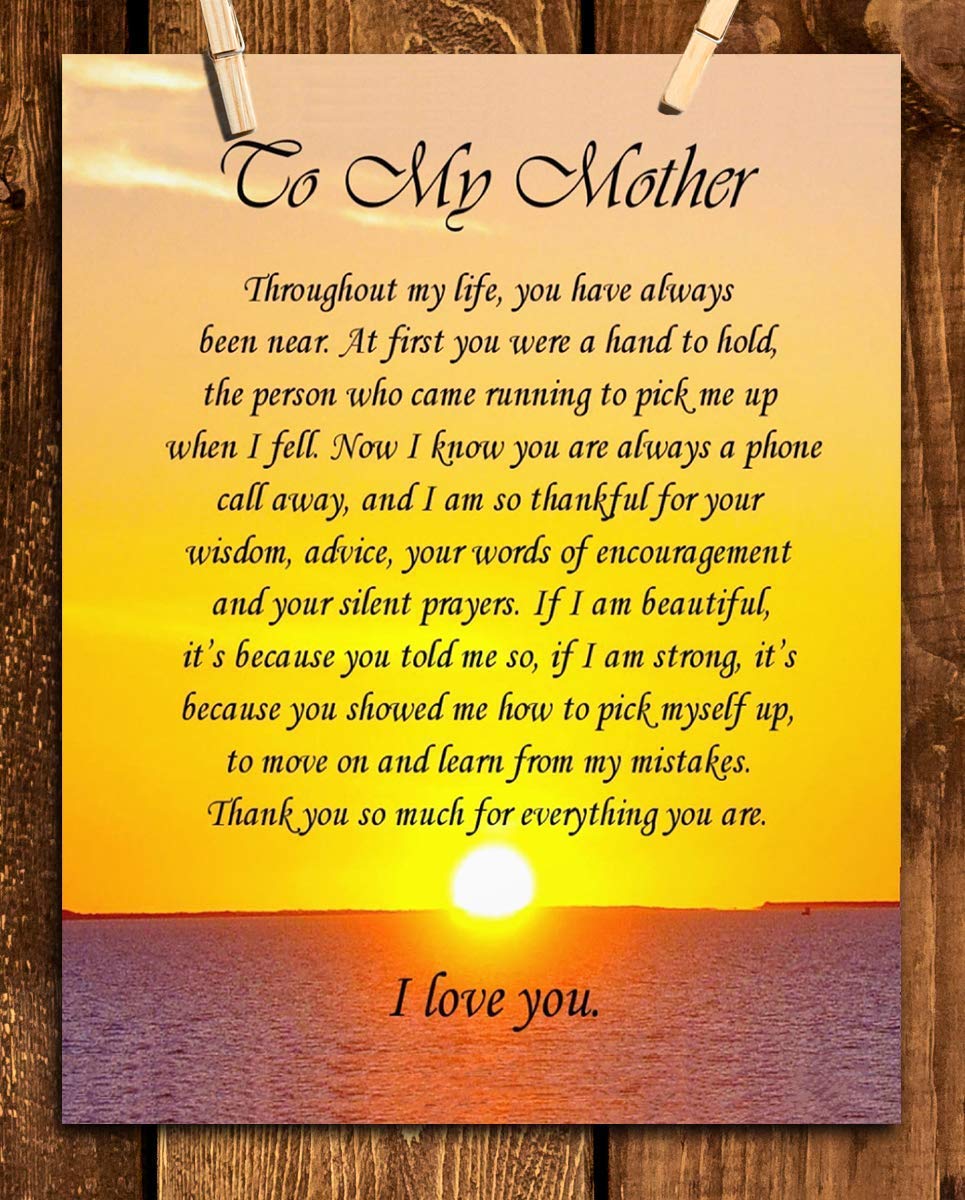 To My Mother
Throughout my life, you have always
been near. At first you were a hand to hold,
the person who came running to pick me up
when I fell. Now I know you are always a phone
call away, and I am so thankful for your
wisdom, advice, your words of encouragement
and your silent prayers. If I am beautiful,
it's because you told me so, if I am strong, it's
because you showed me how to pick myself up,
to move on and learn from my mistakes.
Thank you so much for everything you are.
I love you.